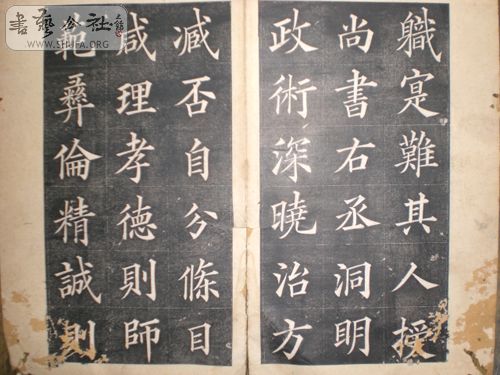 軄寔難其人授
尚書右丞洞明
政術深曉治方
臧否自分條目
咸理孝德則師
範彝倫精誠則
書藝公社
WWW.SHUFA.ORG